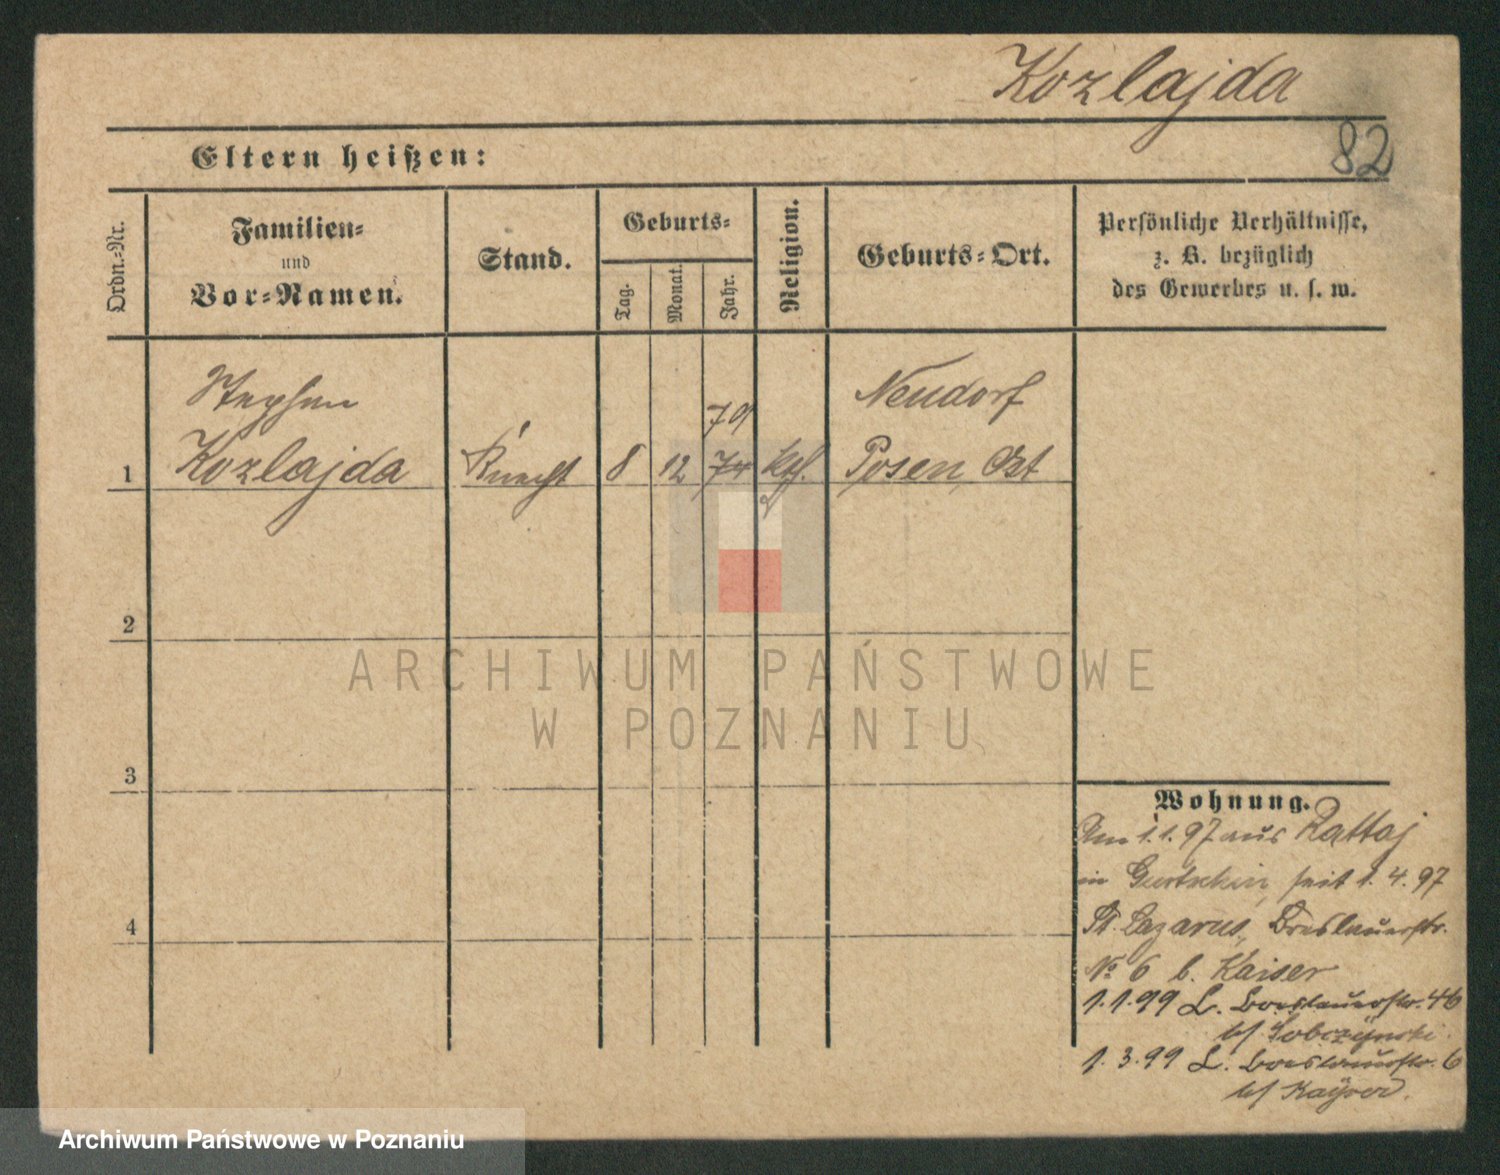 Kozlajda
82
Eltern heißen:
Ordn.-Nr.
Familien-
und
Vor-Namen.
Stand.
Geburts-
Tag.
Monat.
Jahr.
Religion.
Geburts-Ort.
Persönliche Verhältnisse,
z. B. bezüglich
des Gewerbes u. s. w.
Stephan
Neudorf
79
1 Kozlajda Knecht 8 12 74 Kth. Posen, Ost
2
3
4
ARCHIWUM PAŃSTWOWE
W POZNANIU
Wohnung.
Am 1.1.97 aus Rattaj
in Gurtschin, seit 1.4.97
St. Lazarus, Breslauerstr.
No 6 b. Kaiser
1.1.99 L. Breslauerstr. 46
bf Sobczynski.
1.3.99 L. Breslauerstr. 6
bf Kayser.
Archiwum Państwowe w Poznaniu